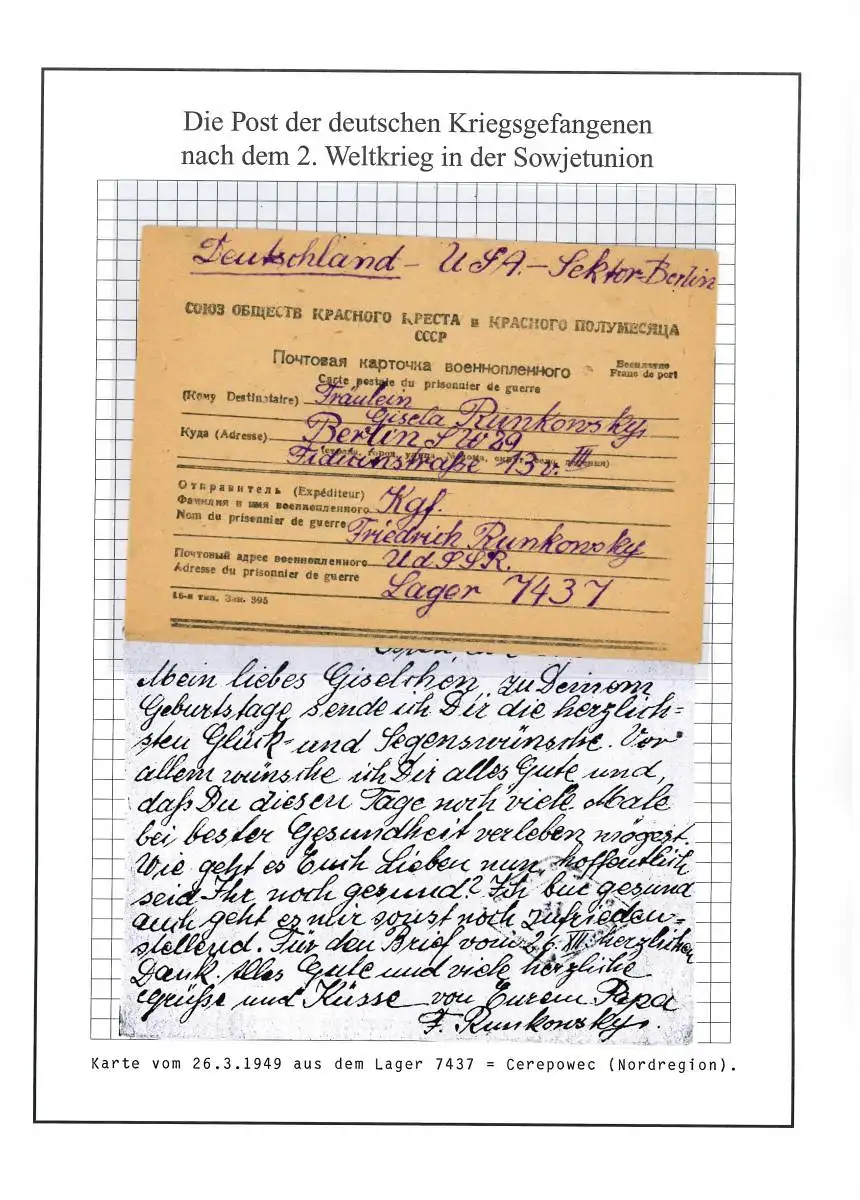 Die Post der deutschen Kriegsgefangenen
nach dem 2. Weltkrieg in der Sowjetunion
Deutschland – USA.–Sektor-Berlin
СОЮЗ ОБЩЕСТВ КРАСНОГО КРЕСТА и КРАСНОГО ПОЛУМЕСЯЦА
СССР
Почтовая карточка военнопленного
Бесплатно
Carte postale du prisonnier de guerre
Franc de port
(Кому Destinataire) Fräulein
Gisela Runkowsky
Куда (Adresse) Berlin SW 29
Fidicinstraße 13 v. III
Отправитель (Expéditeur) Kgf.
Фамилия и имя военнопленного
Nom du prisonnier de guerre Friedrich Runkowsky
Почтовый адрес военнопленного UdSSR.
Adresse du prisonnier de guerre Lager 7437
16-я тип. Зак. 395
Mein liebes Giselchen, zu Deinem
Geburtstage sende ich Dir die herzlich=
sten Glück- und Segenswünsche. Vor
allem wünsche ich Dir alles Gute und,
daß Du diesen Tage noch viele Male
bei bester Gesundheit verleben mögest.
Wie geht es Euch Lieben nun, hoffentlich
seid Ihr noch gesund? Ich bin gesund
auch geht es mir sonst noch zufrieden=
stellend. Für den Brief vom 26.XII. herzlichen
Dank. Alles Gute und viele herzliche
Grüße und Küsse von Eurem Papa
F. Runkowsky.
Karte vom 26.3.1949 aus dem Lager 7437 = Cerepowec (Nordregion).